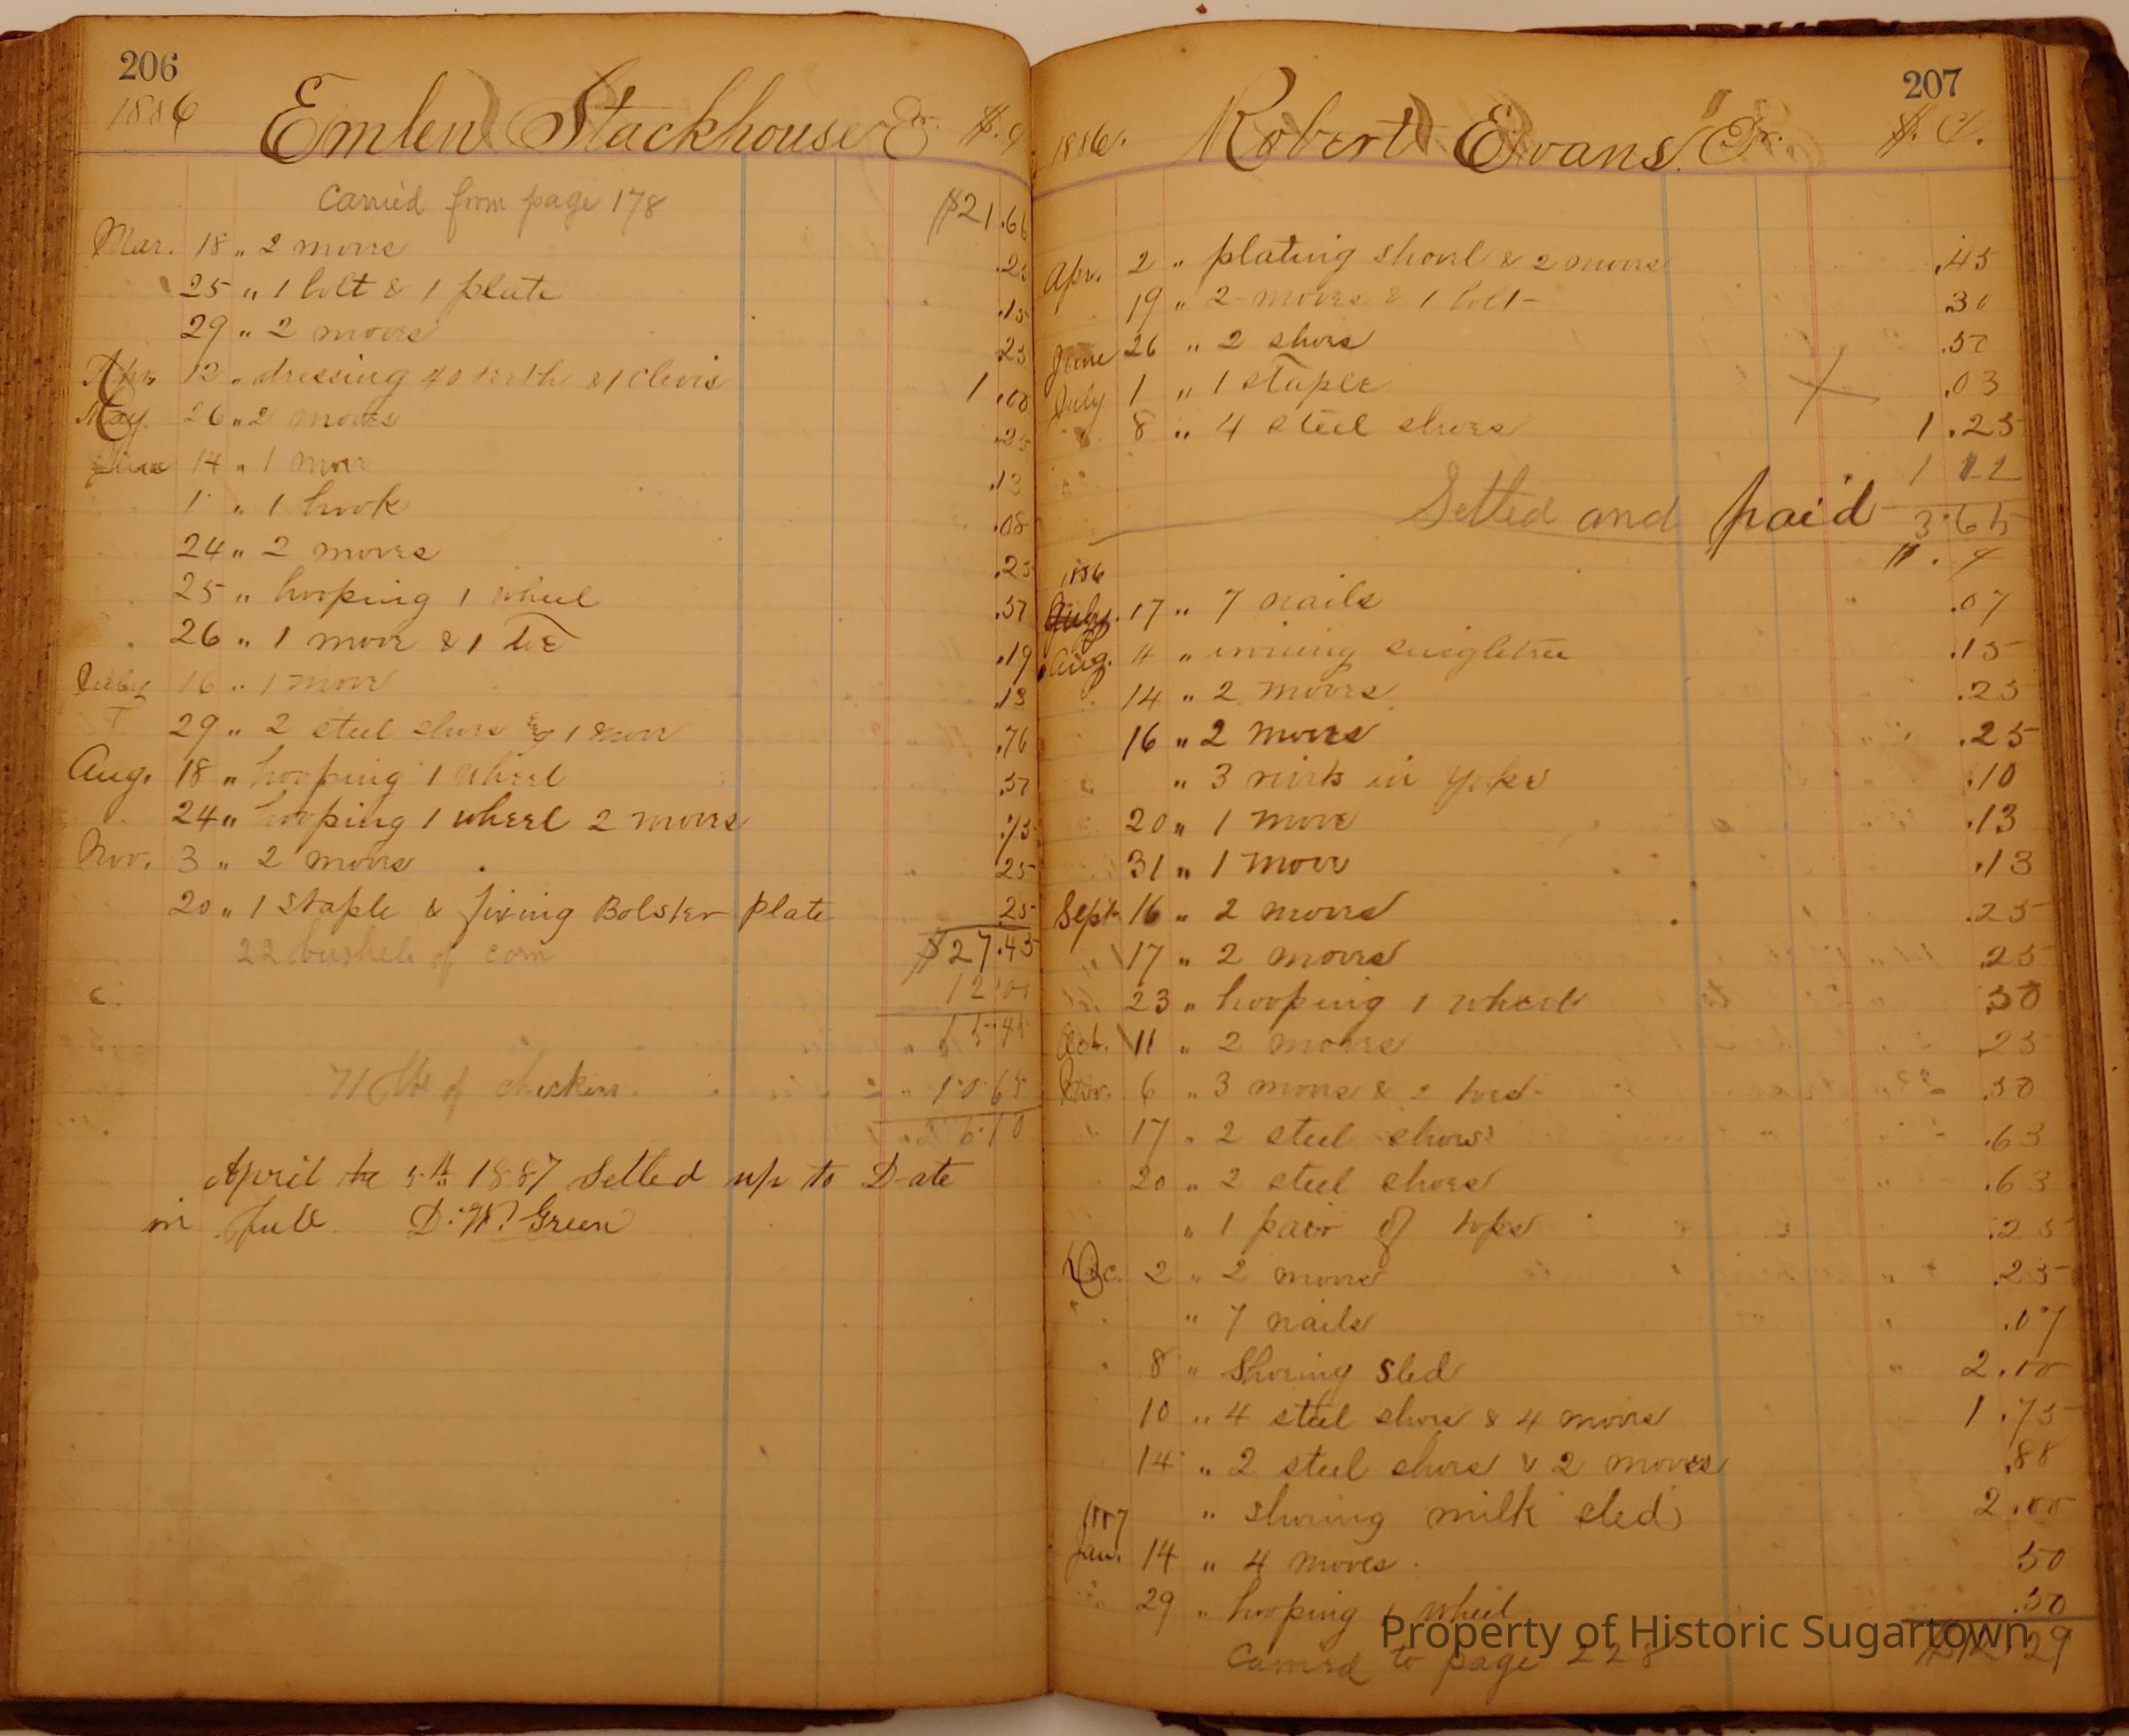 206
1886 Emlen Stackhouse Dr. $. c
Carried from page 178 $21.66
Mar. 18 " 2 moves .25
25 " 1 bolt & 1 plate .15
29 " 2 moves .25
Apr. 12 " dressing 40 teeth & 1 clevis 1.00
May. 26 " 2 moves .25
June 14 " 1 move .13
1 " 1 hook .08
24 " 2 moves .25
25 " hooping 1 wheel .37
26 " 1 move & 1 toe .19
July 16 " 1 move .13
29 " 2 steel shoes & 1 move .76
Aug. 18 " hooping 1 wheel .37
24 " hooping 1 wheel 2 moves .75
Nov. 3 " 2 moves 25
20 " 1 staple & fixing Bolster plate 25
$27.45
22 bushels of corn 12.00
15.45
71 lbs of chickens 10 65
6.10
April the 5th 1887 Setled up to Date
in full D. W. Green
207
1886. Robert Evans. Dr. $. C.
Apr. 2 " plating shovel & 2 moves .45
19 " 2 moves & 1 bolt .30
June 26 " 2 shoes .50
July 1 " 1 staple .03
8 " 4 steel shoes 1.25
1 12
Setled and paid 3.65
1886
July. 17 " 7 nails .07
Aug. 4 " ironing singletree .15
14 " 2 moves .25
16 " 2 moves .25
" 3 rivets in yoke .10
20 " 1 move .13
31 " 1 move .13
Sept. 16 " 2 moves .25
17 " 2 moves .25
23 " hooping 1 wheel 50
Oct. 11 " 2 moves 25
Nov. 6 " 3 moves & 2 toes .50
17 " 2 steel shoes .63
20 " 2 steel shoes .63
" 1 pair of tops .25
Dec. 2 " 2 moves .25
" 7 nails .07
8 " Shoeing sled 2.00
10 " 4 steel shoes & 4 moves 1.75
14 " 2 steel shoes & 2 moves .88
" shoeing milk sled 2.00
1887
Jan. 14 " 4 moves 50
29 " hooping 1 wheel .50
Carried to page 228 29
Property of Historic Sugartown